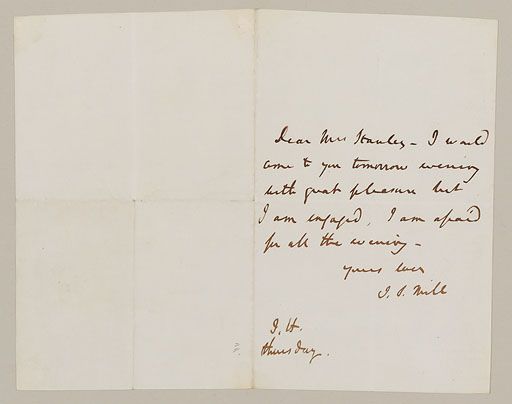 Dear Mrs Stanley – I would
come to you tomorrow evening
with great pleasure but
I am engaged, I am afraid
for all the evening –
yours ever
J. S. Mill
I. H.
Thursday.